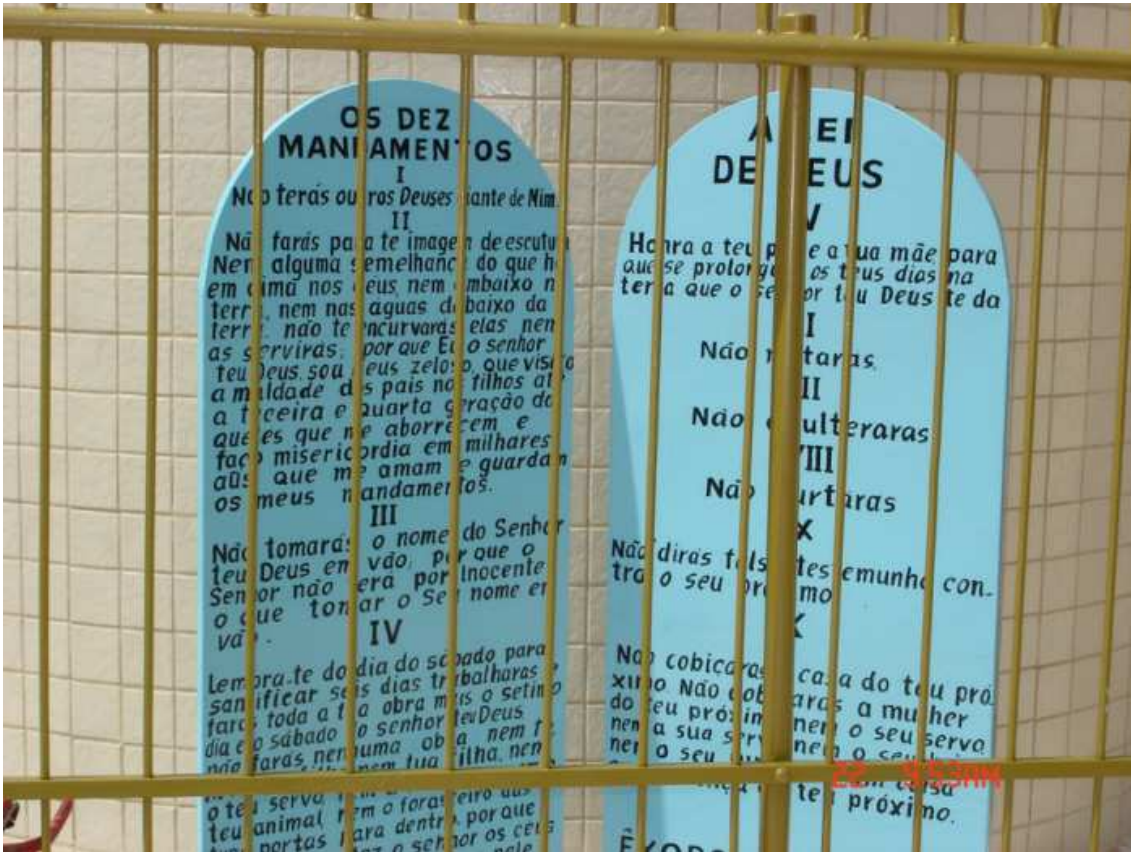 OS DEZ
MANDAMENTOS
I
Não terás outros Deuses diante de Mim.
II
Não farás para te imagem de escutura
Nem alguma semelhança do que há
em cima nos céus, nem embaixo na
terra, nem nas aguas debaixo da
terra, não te encurvarás elas nem
as serviras; por que Eu o senhor
teu Deus, sou Deus zeloso, que visito
a maldade dos pais nos filhos até
a teceira e quarta geração da
queles que me aborrecem e
faço misericordia em milhares
aus que me amam e guardam
os meus mandamentos.
III
Não tomarás o nome do Senhor
teu Deus em vão, por que o
Senhor não terá por Inocente
o que tomar o Seu nome em
vão.
IV
Lembra-te do dia do sábado para
santificar seis dias trabalharas e
faras toda a tua obra mais o setimo
dia é o sábado do senhor teu Deus
não faras nenhuma obra nem te
nem tua filha, nem
o teu servo
teu animal nem o forasteiro das
tuas portas para dentro, porque
o senhor os ceus
A LEI
DE DEUS
V
Honra a teu pai e a tua mãe para
que se prolongue os teus dias na
terra que o senhor teu Deus te da
VI
Não mataras
VII
Não adulteraras
VIII
Não furtaras
IX
Não diras falso testemunho con-
tra o seu proximo
X
Não cobicaras a casa do teu pró
ximo Não cobiçaras a mulher
do teu próximo nem o seu servo
nem a sua serva nem o seu
nem o seu
coisa
teu próximo.
ÊXODO
22 9:53AM